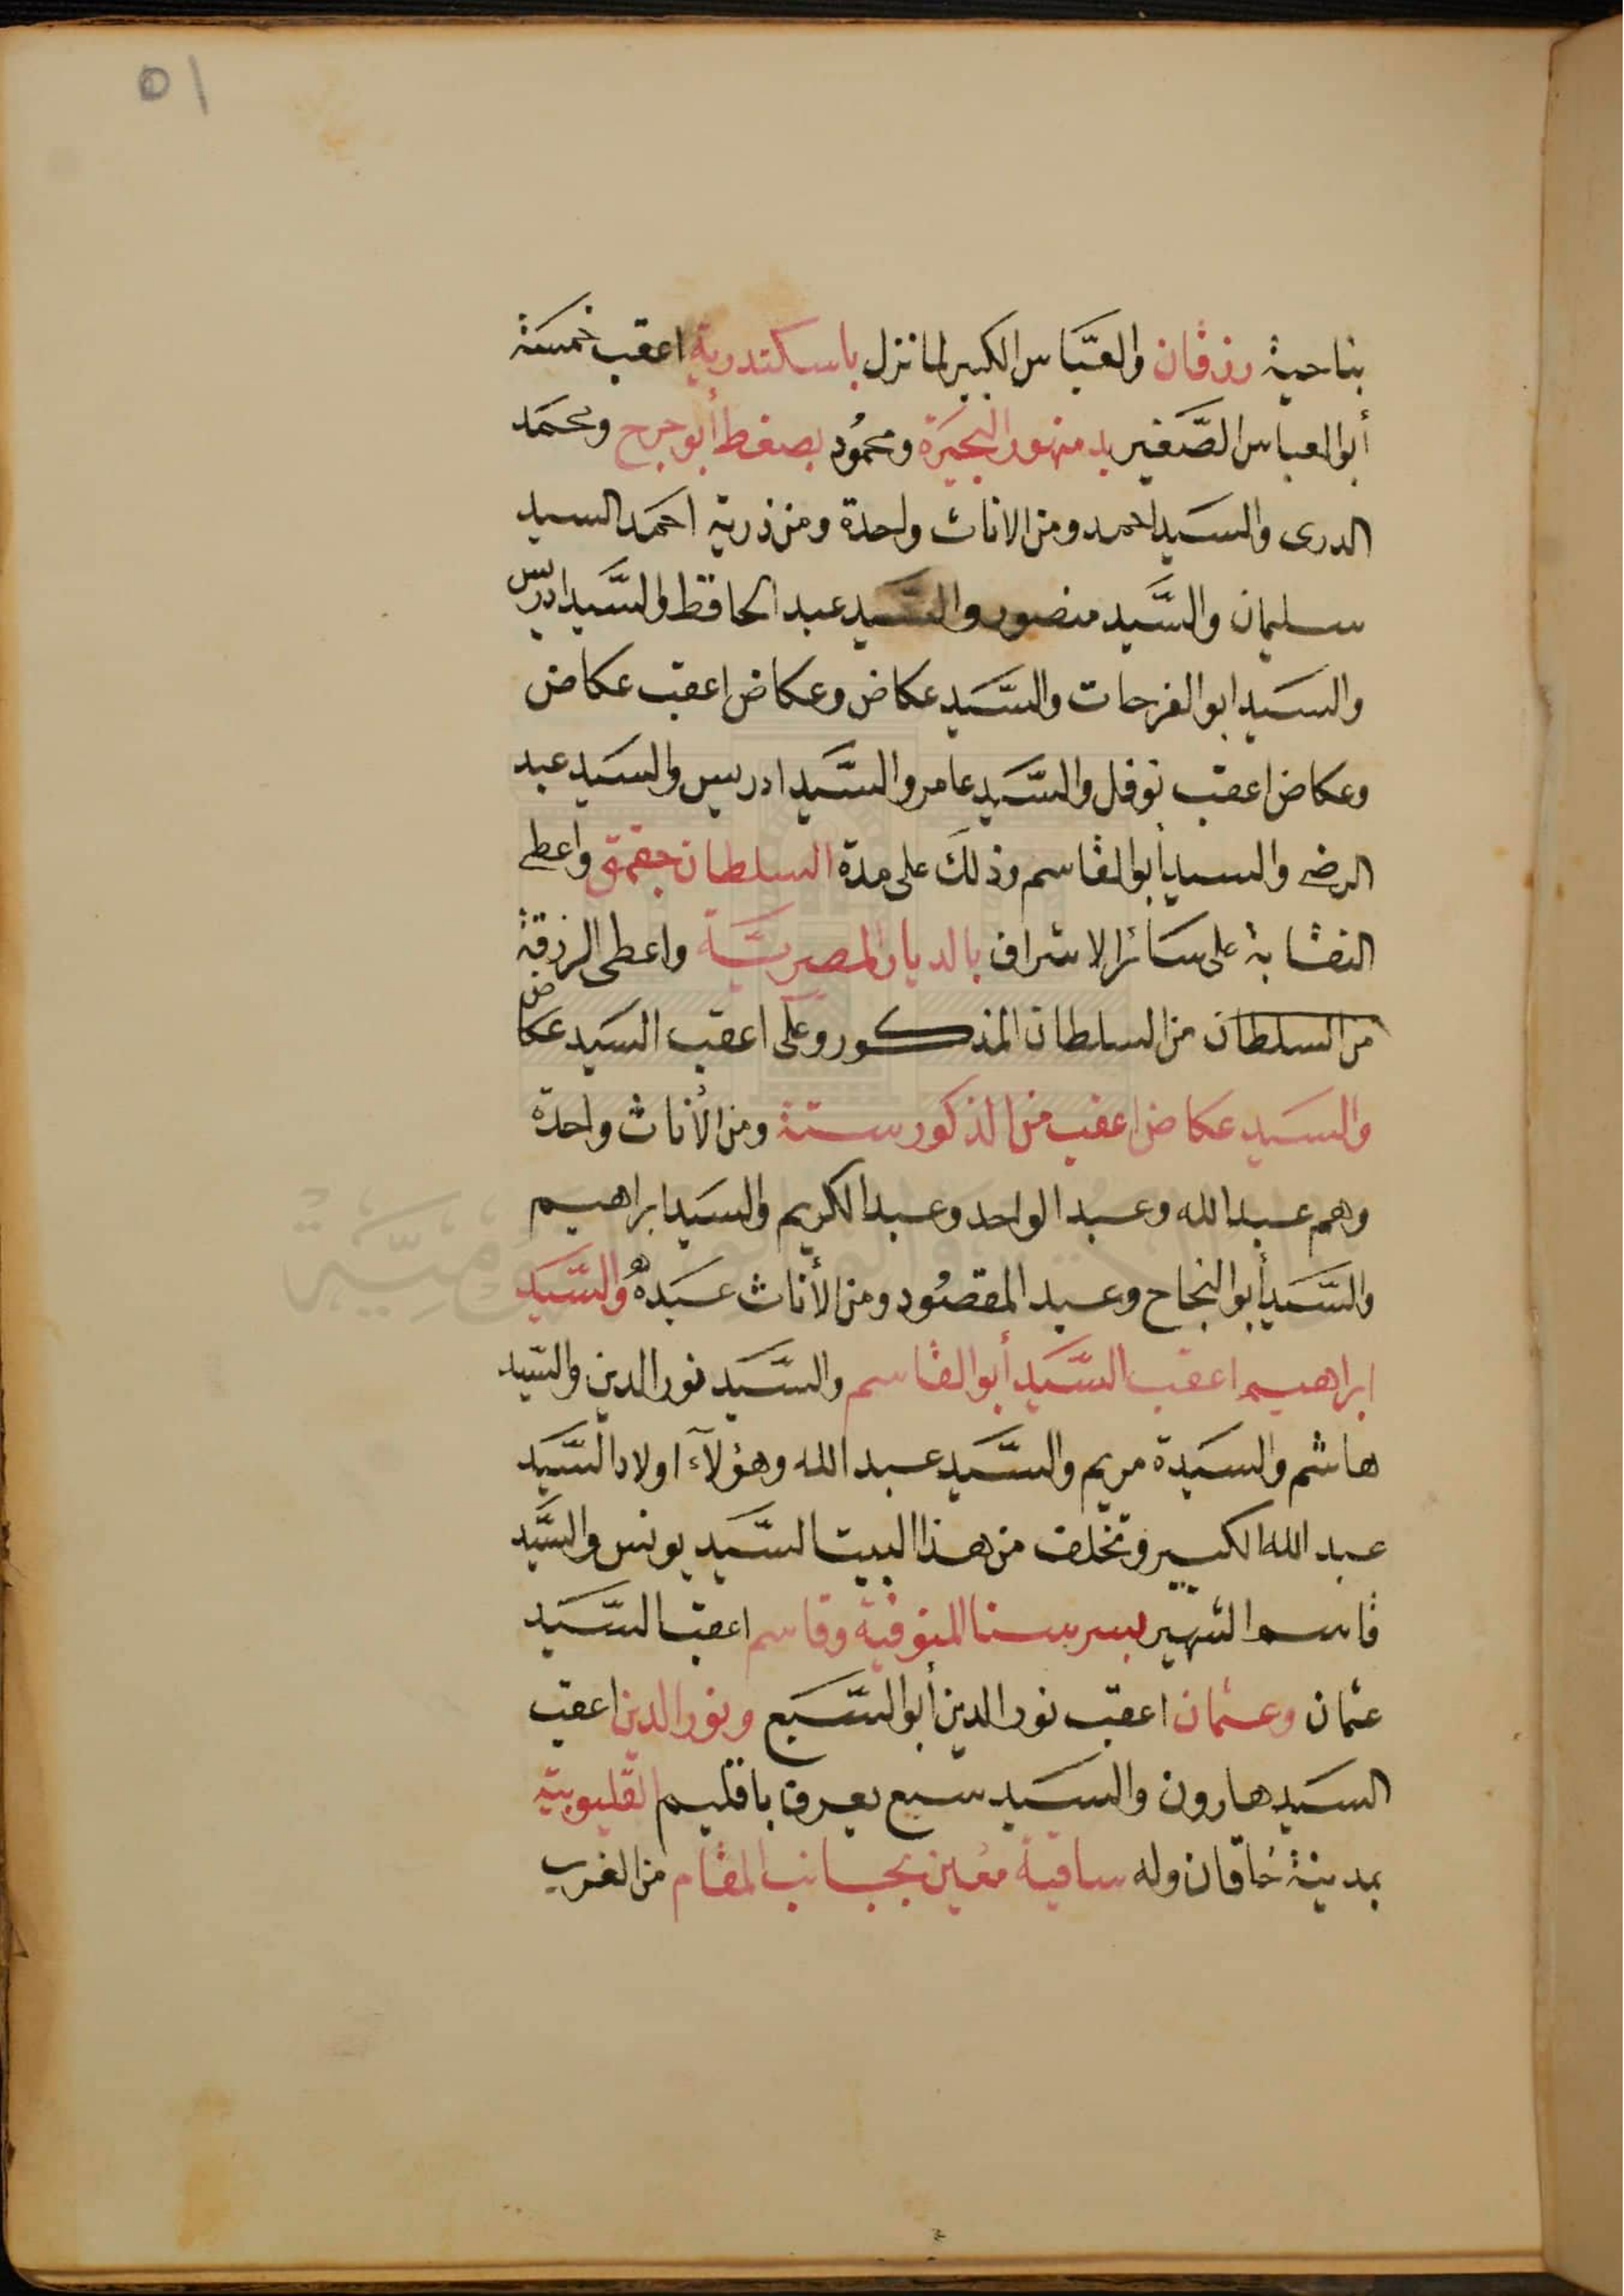 ٥١
بناحية رزقان والعبَّاس الكبير لما نزل باسكندرية اعقب خمسة
أبوالعباس الصَّغير بدمنهور البحيَرة ومحمُود بصفط أبوجرج ومحمَد
الدرى والسَيد احمد ومن الاناث واحدة ومن ذرية احمَد السيد
سليمان والسَّيد منصور والسَّيد عبد الحافظ والسَّيد ادريس
والسَيد ابوالفرحات والسَّيد عكاض وعكاض اعقب عكاض
وعكاض اعقب نوفل والسَّيد عامر والسَّيد ادريس والسَيد عبد
الرضى والسيد أبوالقاسم وذلكَ على مدة السلطان جقمق واعطى
النقابة على سَائر الاشراف بالديار المصريَّة واعطى الرزقة
من السلطان من السلطان المذكور وعلى اعقب السَيد عكاض
والسَيد عكاض اعقب من الذكور ستة ومن الأناث واحدة
وهم عبد الله وعبد الواحد وعبد الكريم والسَيد ابراهيم
والسَّيد أبوالنجاح وعبد المقصُود ومن الأناث عبَده والسَّيَد
ابراهيم اعقب السَّيَد أبوالقاسم والسَّيَد نورالدين والسَّيد
هاشم والسَيَدة مريم والسَّيَد عبد الله وهؤلآء اولاد السَّيَد
عبد الله الكبير وتخلف من هذا البيت السَّيد يونس والسَّيَد
قاسم الشهير بسرسنا المنوفية وقاسم اعقب السَّيَد
عثمان وعثمان اعقب نورالدين أبوالسَّبَع ونورالدين اعقب
السَيد هارون والسَيد سبع يعرف باقليم القليوبية
بمدينة خاقان وله ساقية معين بجانب المقام من الغرب